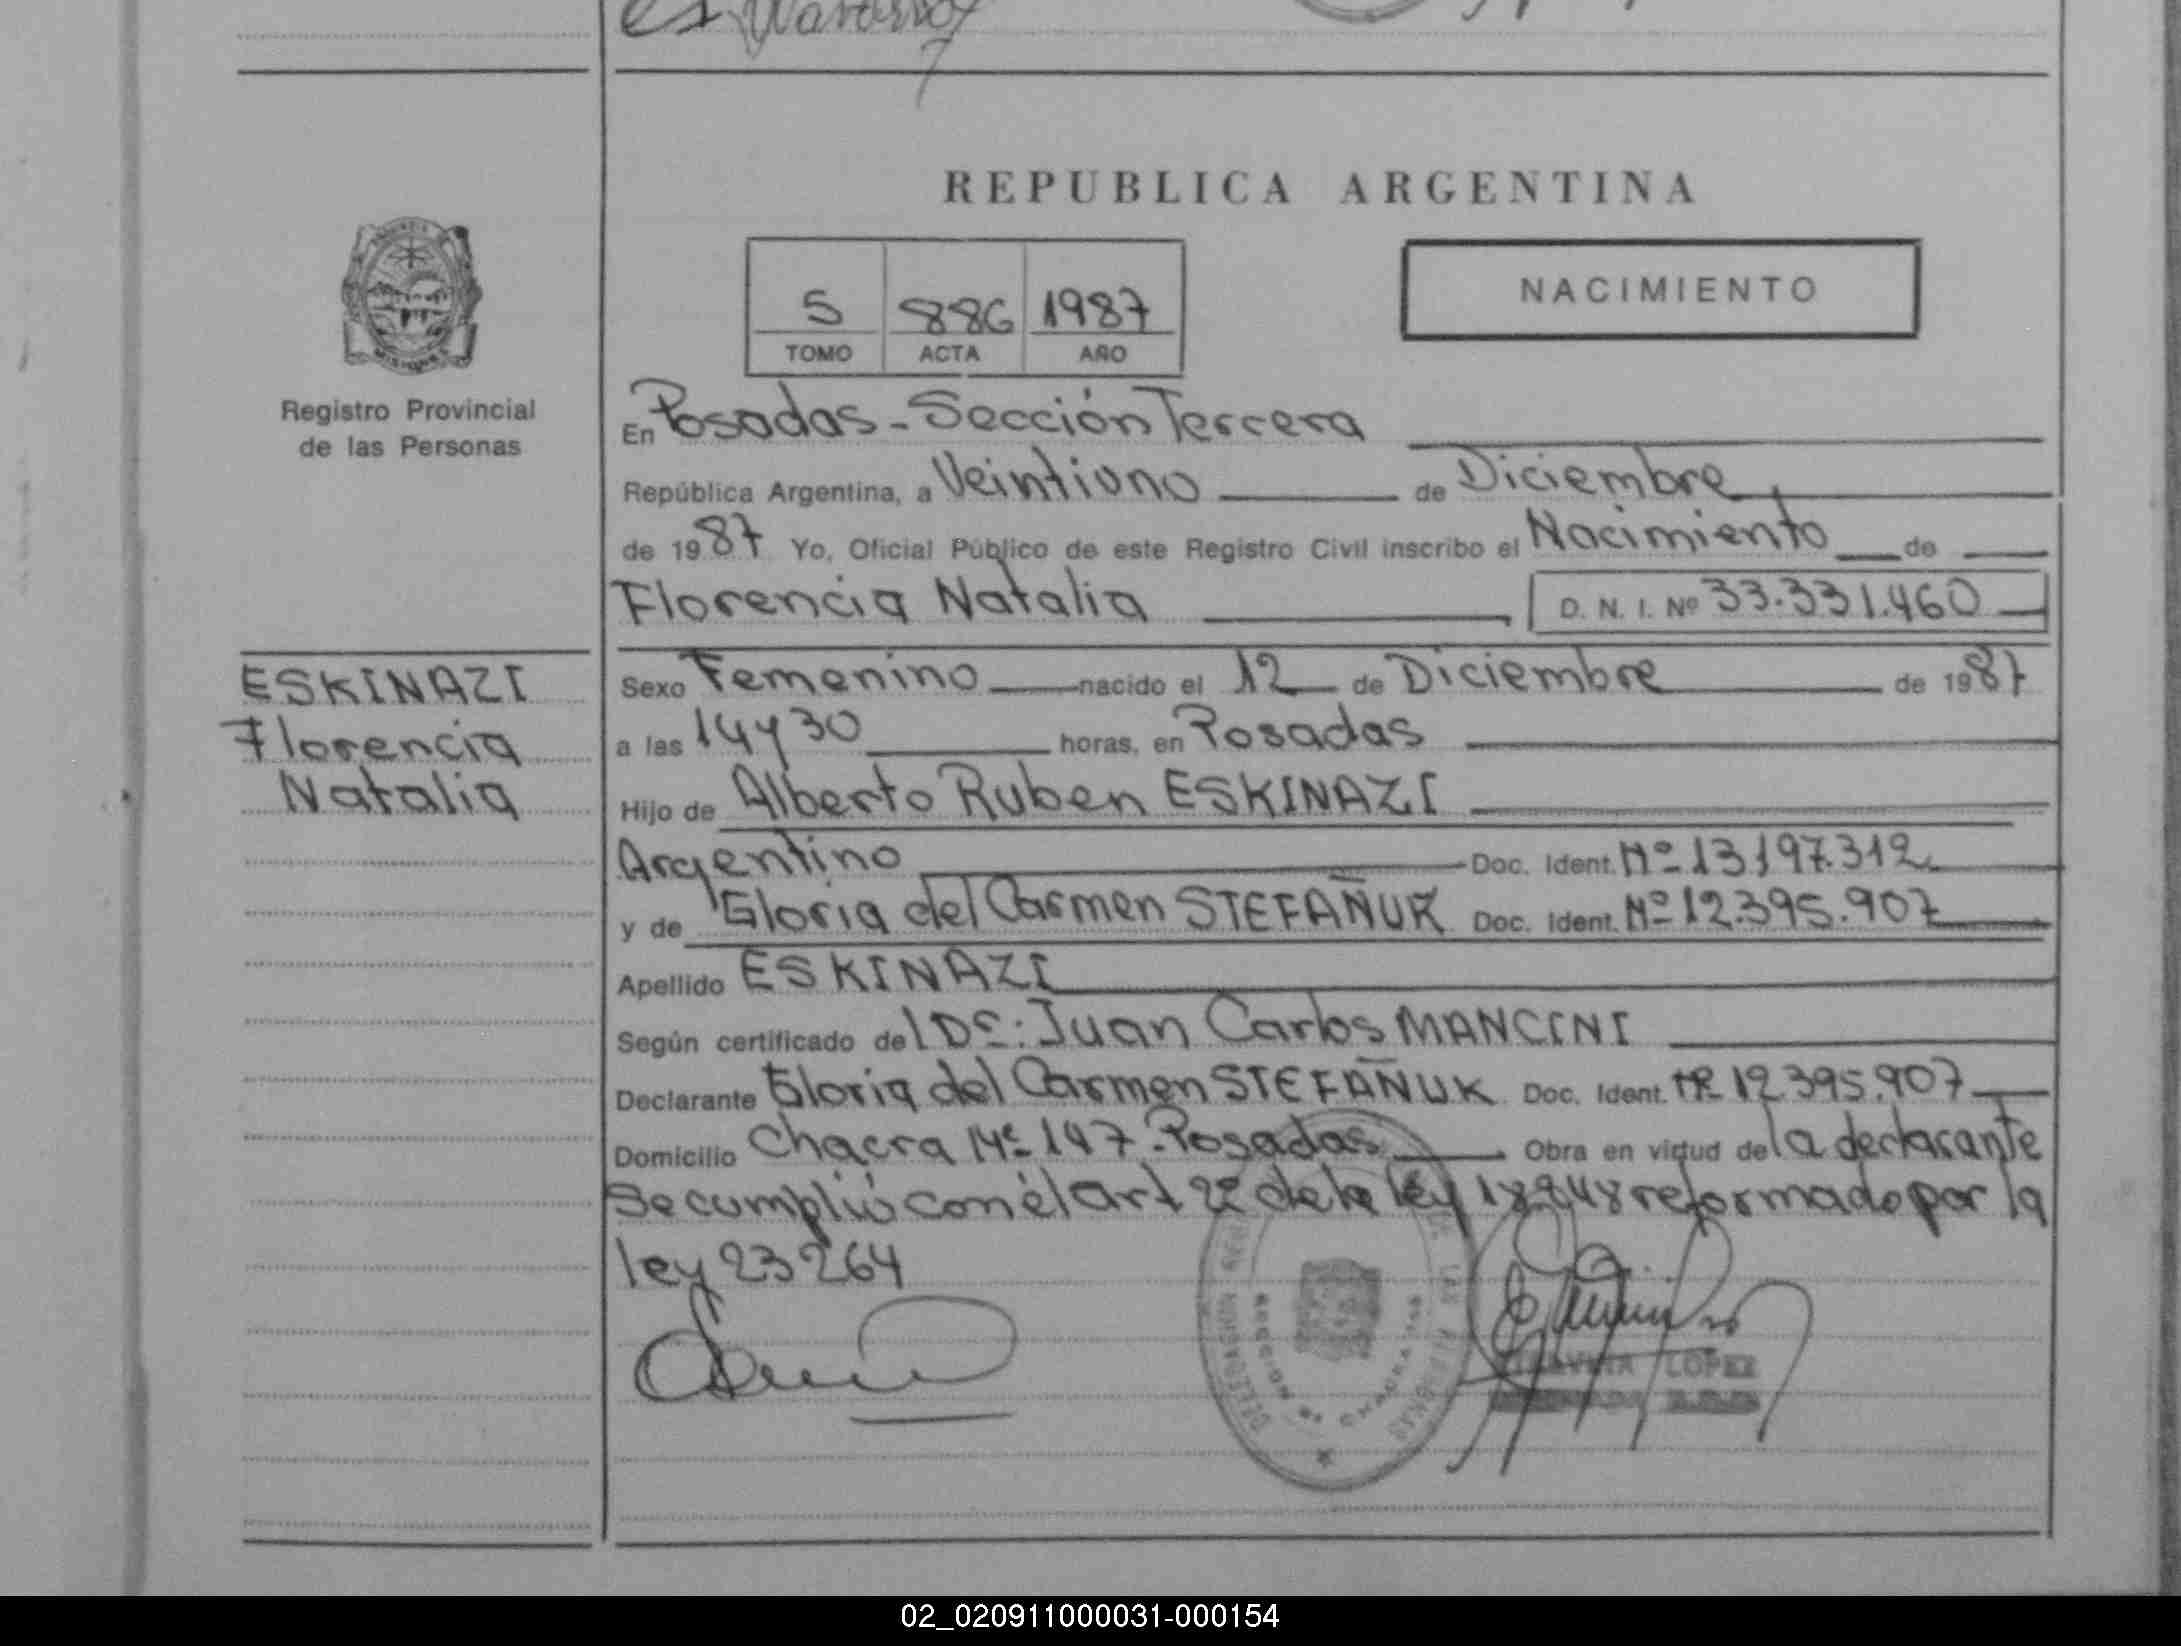 REPUBLICA ARGENTINA
5 886 1987
TOMO ACTA AÑO
NACIMIENTO
MISIONES
Registro Provincial
de las Personas
En Posadas - Sección Tercera
República Argentina, a Veintiuno de Diciembre,
de 1987 Yo, Oficial Público de este Registro Civil inscribo el Nacimiento de
Florencia Natalia D. N. I. Nº 33.331.460
ESKINAZI
Florencia
Natalia
Sexo Femenino nacido el 12 de Diciembre de 1987
a las 14 y 30 horas, en Posadas
Hijo de Alberto Ruben ESKINAZI
Argentino Doc. Ident. Nº 13197.312
y de Gloria del Carmen STEFAÑUK Doc. Ident. Nº 12.395.907
Apellido ESKINAZI
Según certificado del Dr: Juan Carlos MANCINI
Declarante Gloria del Carmen STEFAÑUK Doc. Ident. Nº 12.395.907
Domicilio Chacra Nº 147 - Posadas Obra en virtud de la declarante
Se cumplió con el art 2º de la ley 18248 reformado por la
ley 23264
LOPEZ
02_020911000031-000154